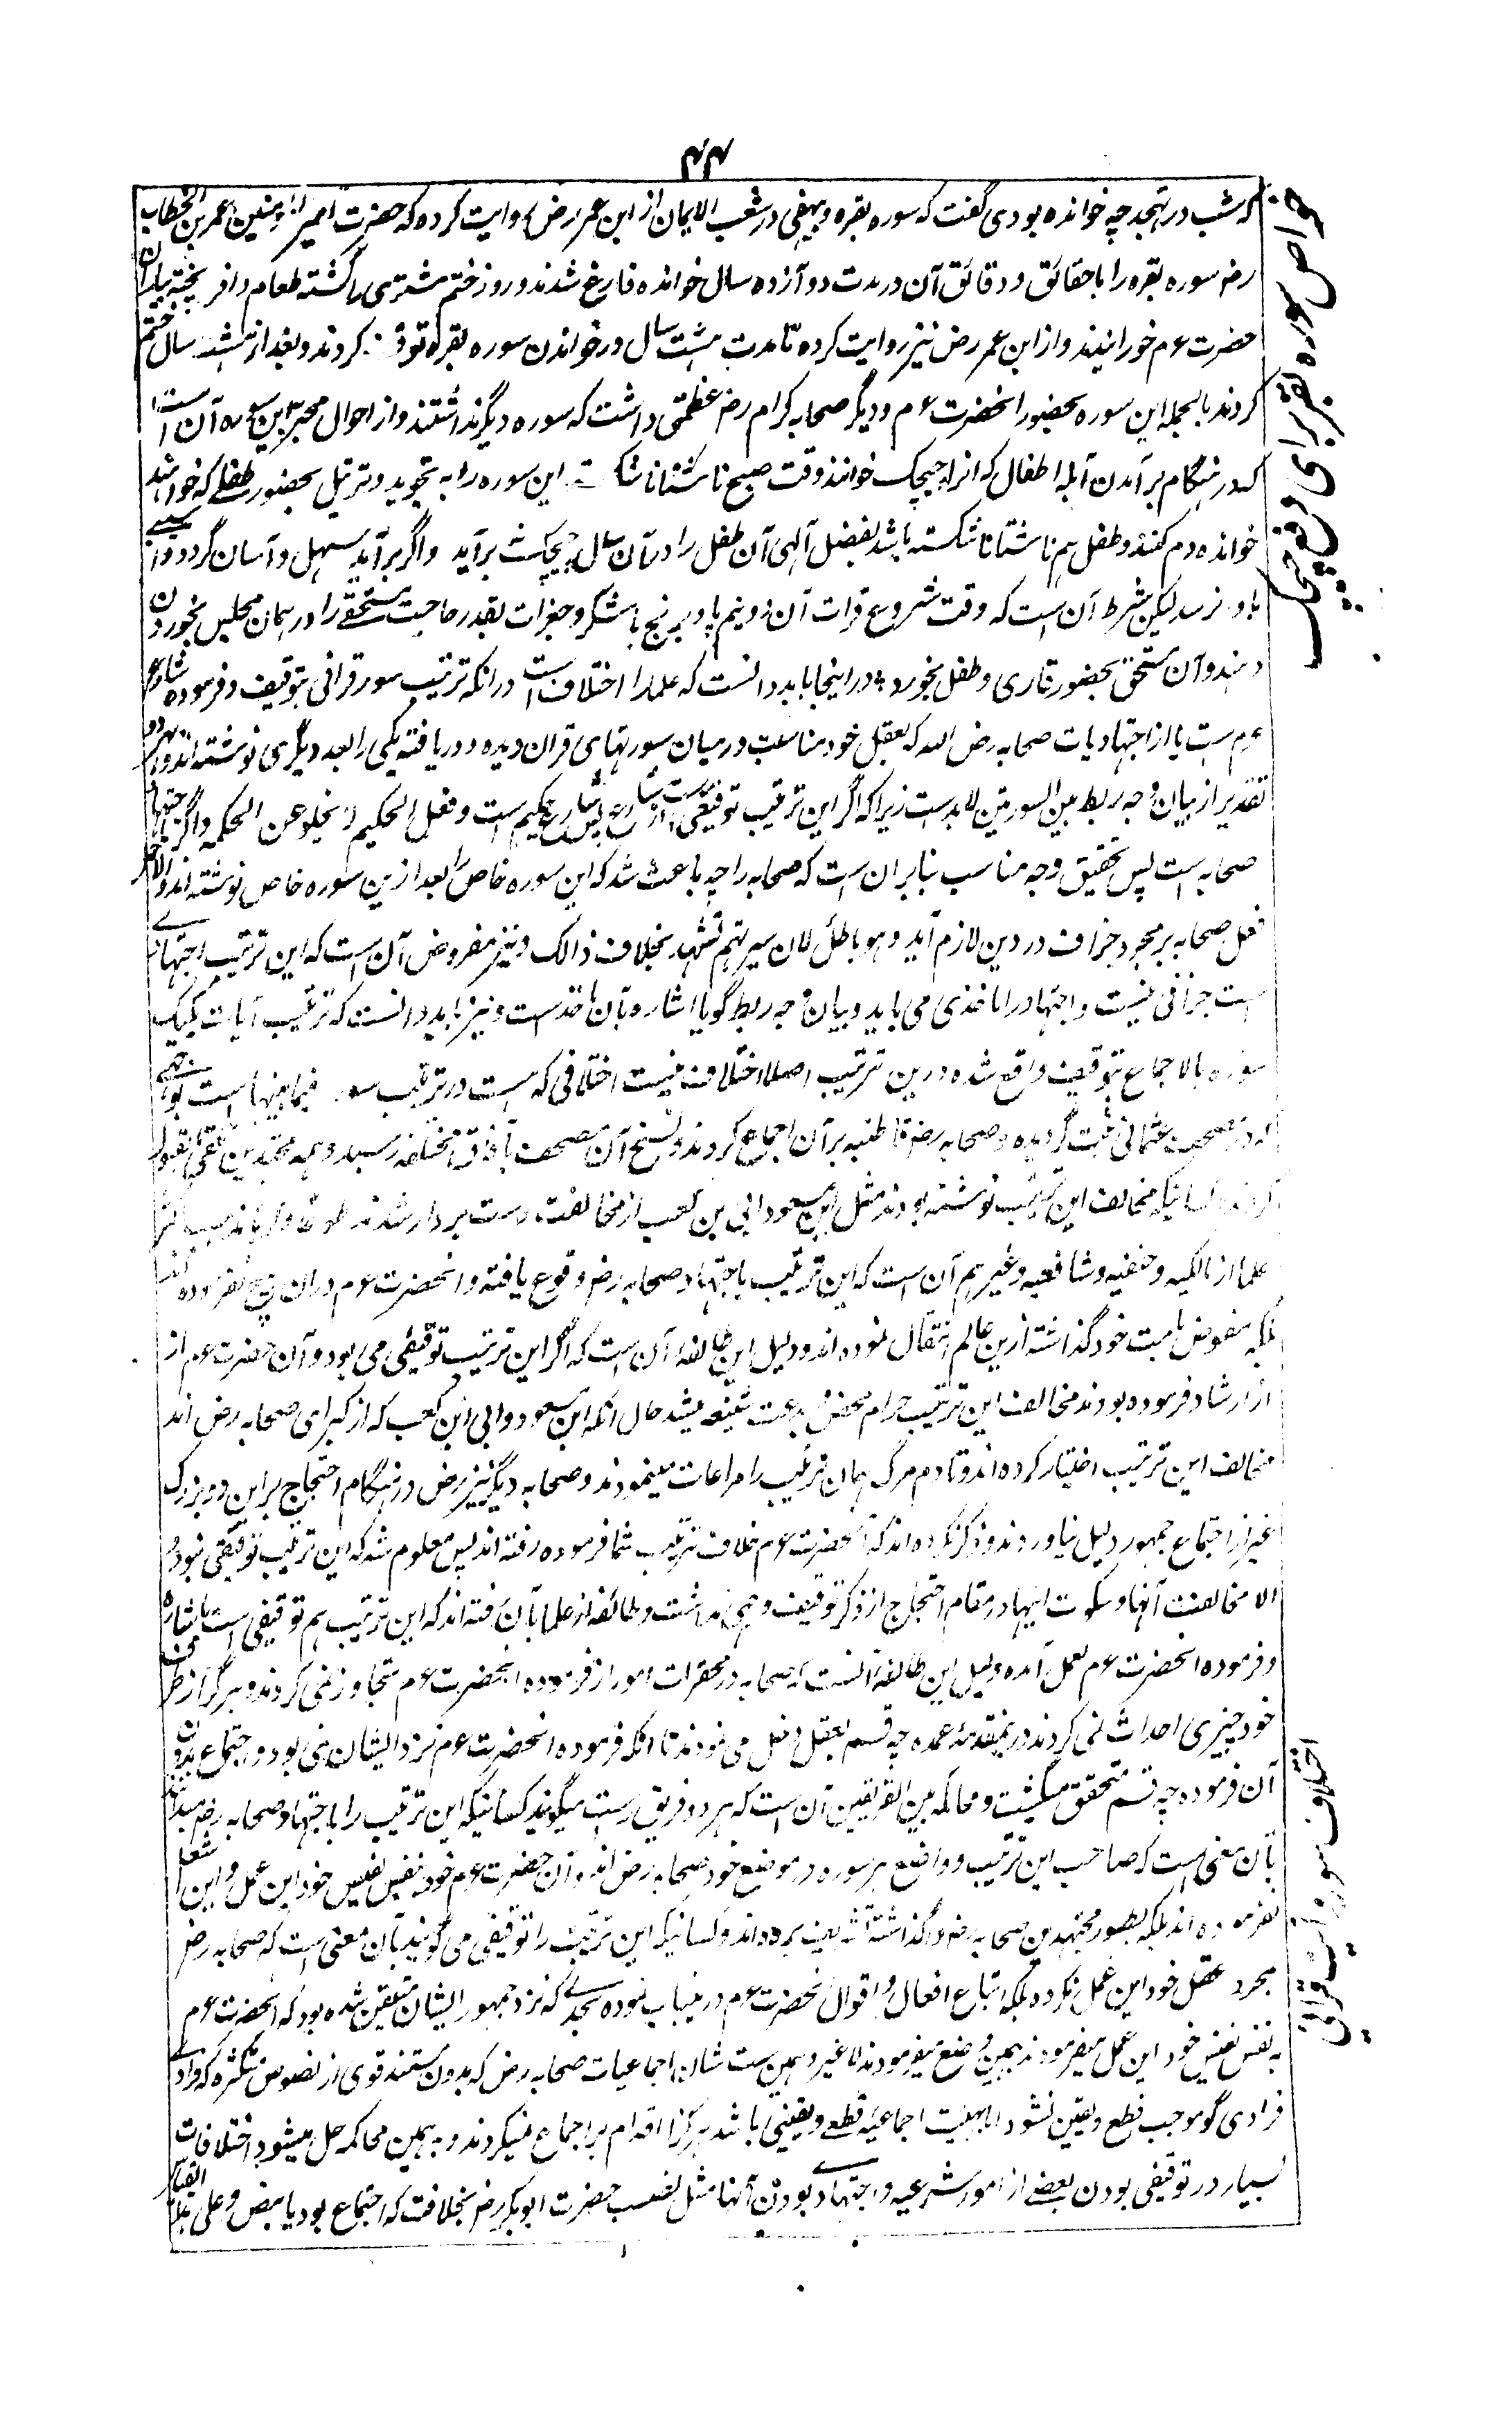 ۴۴
که شب در تهجد چه خوانده بودی گفت که سوره بقره و بیهقی در شعب الایمان از ابن عمر رض روایت کرده که حضرت امیر المؤمنین عمر بن الخطاب
رض سوره بقره را با حقائق و دقائق آن در مدت دوازده سال خوانده فارغ شدند و روز ختم شتری را کشته طعام وافر پخته بیاران
حضرت عم خورانیدند و از ابن عمر رض نیز روایت کرده تا مدت هشت سال در خواندن سوره بقره توقف کردند و بعد از هشت سال ختم
کردند بالجمله این سوره بحضور انحضرت عم و دیگر صحابه کرام رض عظمتی داشت که سوره دیگر نداشتند و از احوال مجربه این سوره آن است
که در هنگام برآمدن آبله اطفال که انرا چیچک خوانند وقت صبح ناشتا ناشکسته این سوره را به تجوید و ترتیل بحضور طفلی که خواهند
خوانده دم کنند و طفل هم ناشتا ناشکسته باشد بفضل آلهی آن طفل را در آن سال چیچک نه برآید و اگر برآید سهل و آسان گردد و آسیبی
باو نرسد لیکن شرط آن است که وقت شروع قرات آن دو نیم پاو برنج با شکر و جغرات بقدر حاجت مستحقی را در همان مجلس بخوردن
دهند و آن مستحق بحضور قاری و طفل بخورد و در اینجا باید دانست که علما را اختلاف است در انکه ترتیب سور قرانی بتوقیف و فرموده شارع
عم ست یا از اجتهادیات صحابه رض الله که بعقل خود مناسبت درمیان سورتهای قران دیده و دریافته یکی را بعد دیگری نوشته اند و بهر دو
تقدیر از بیان وجه ربط بین السورتین لابدست زیرا که اگر این ترتیب توقیفی ست از شارع پس شارع حکیم ست و فعل الحکیم لا یخلو عن الحکمه و اگر باجتهاد
صحابه ست پس تحقیق وجه مناسب بنابران ست که صحابه را چه باعث شد که این سوره خاص را بعد ازین سوره خاص نوشته اند والا حمل
فعل صحابه بر مجرد جزاف در دین لازم آید و هو باطل لان سیرتهم تشهد بخلاف ذالک و نیز مفروض آن است که این ترتیب اجتهادی
ست جزافی نیست و اجتهاد را ماخذی می باید و بیان وجه ربط گویا اشاره بآن ماخذست و نیز باید دانست که ترتیب آیات یکیک
سوره بالاجماع بتوقیف واقع شده درین ترتیب اصلا اختلاف نیست اختلافی که هست در ترتیب سور فیما بینها است بوجهی
که در مصحف عثمانی ثبت گردیده و صحابه رض قاطبه بر آن اجماع کردند و نسخ آن مصحف بآفاق مختلفه رسید و همه مجتهدین تلقی بقبول
کردند و کسانیکه مخالف این ترتیب نوشته بودند مثل ابن مسعود و ابی بن کعب از مخالفت دست بردار شدند طوعا و کرها مذهب اکثر
علما از مالکیه و حنفیه و شافعیه و غیرهم آن ست که این ترتیب باجتهاد صحابه رض وقوع یافته و انحضرت عم دران هیچ نفرموده اند
بلکه مفوض بامت خود گذاشته ازین عالم انتقال نموده اند و دلیل این طائفه آن ست که اگر این ترتیب توقیفی می بود و آن حضرت عم از
آن ارشاد فرموده بودند مخالف این ترتیب حرام محض و بدعت شنیعه میشد حال آنکه ابن مسعود و ابی ابن کعب که از کبرای صحابه رض اند
مخالف این ترتیب اختیار کرده اند و تا دم مرگ همان ترتیب را مراعات مینمودند و صحابه دیگر نیز رض در هنگام احتجاج بر این دو بزرگ
غیر از اجتماع جمهور دلیل نیاوردند و ذکر نکرده اند که آنحضرت عم خلاف ترتیب شما فرموده رفته اند پس معلوم شد که این ترتیب توقیفی نبود و
الا مخالفت آنها و سکوت اینها در مقام احتجاج از ذکر توقیف وجهی نداشت و طائفه از علما بآن رفته اند که این ترتیب هم توقیفی است باشاره
و فرموده انحضرت عم بعمل آمده و دلیل این طائفه آنست که صحابه در محقرات امور از فرموده انحضرت عم تجاوز نمی کردند و هرگز از طرف
خود چیزی احداث نمی کردند درینمقدمه عمده چه قسم بعقل دخل می نمودند تا انکه فرموده انحضرت عم نزد ایشان نمی بود و اجتماع بدون
آن فرموده چه قسم متحقق میگشت و محاکمه بین الفریقین آن ست که هر دو فریق راست میگویند کسانیکه این ترتیب را باجتهاد صحابه رض میدانند
بآن معنی ست که صاحب این ترتیب و واضع هر سوره در موضع خود صحابه رض اند و آن حضرت عم خود بنفس نفیس خود این عمل و این شغل
نفرموده اند بلکه بصور مجتهدین صحابه رض واگذاشته تشریف برده اند و کسانیکه این ترتیب را توقیفی می گویند بآن معنی ست که صحابه رض
بمجرد عقل خود این عمل نکرده بلکه اتباع افعال و اقوال انحضرت عم درینباب نموده بحدی که نزد جمهور ایشان متیقن شده بود که انحضرت عم
به نفس نفیس خود این عمل میفرمودند بهمین وضع میفرمودند لا غیر و همین ست شان اجماعیات صحابه رض که بدون مستند قوی از نصوص متکثره که فرادی
فرادی گو موجب قطع و یقین نشود اما بهیئت اجماعیه قطعی و یقینی باشد هرگز اقدام بر اجماع نمیکردند و بهمین محاکمه حل میشود اختلافات
بسیار در توقیفی بودن بعضی از امور شرعیه و اجتهادی بودن آنها مثل نصب حضرت ابوبکر رض بخلافت که اجتماع بود یا بنص و علی هذا القیاس
خواص سوره بقر برای دفع چیچک
اختلاف سور ترتیب قرانی